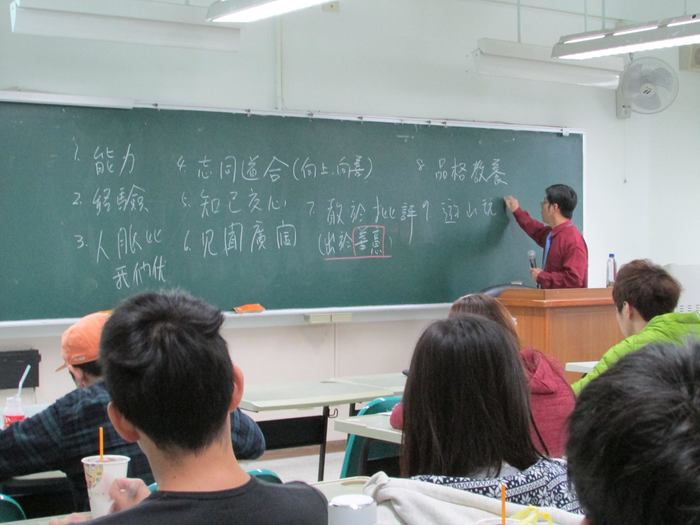 1. 能力
2. 經驗
3. 人脈比
我們優
4. 志同道合(向上.向善)
5. 知己交心
6. 見聞廣闊
7. 敢於批評
(出於善意)
8. 品格教養